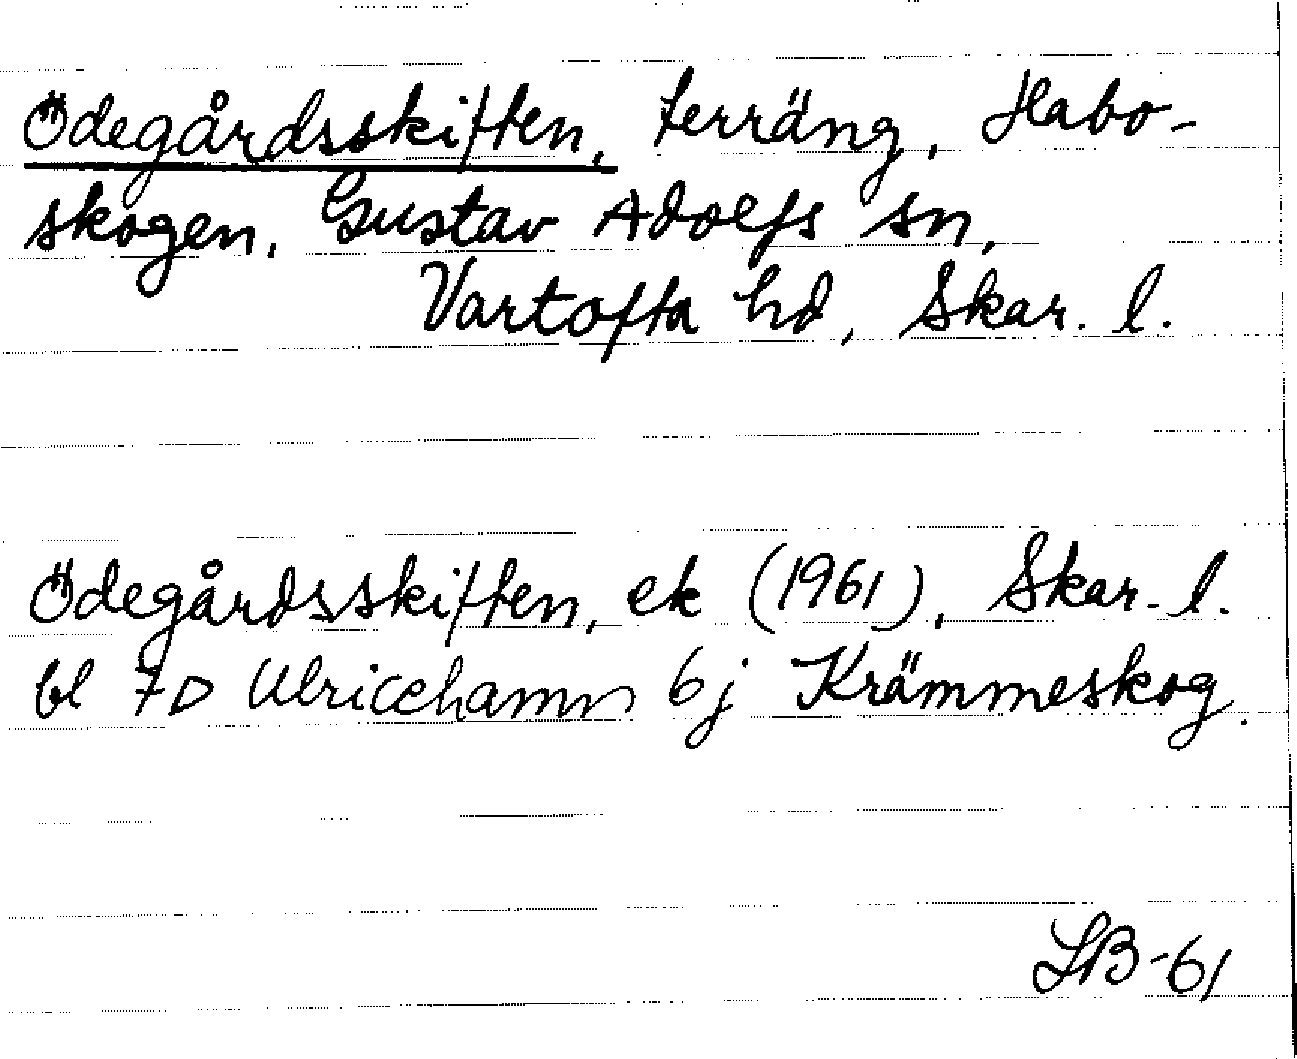 Ödegårdsskiften, terräng, Habo-
skogen, Gustav Adolfs sn,
Vartofta hd, Skar. l.
Ödegårdsskiften, ek (1961), Skar. l.
bl 7D Ulricehamn 6j Krämmeskog.
LB-61